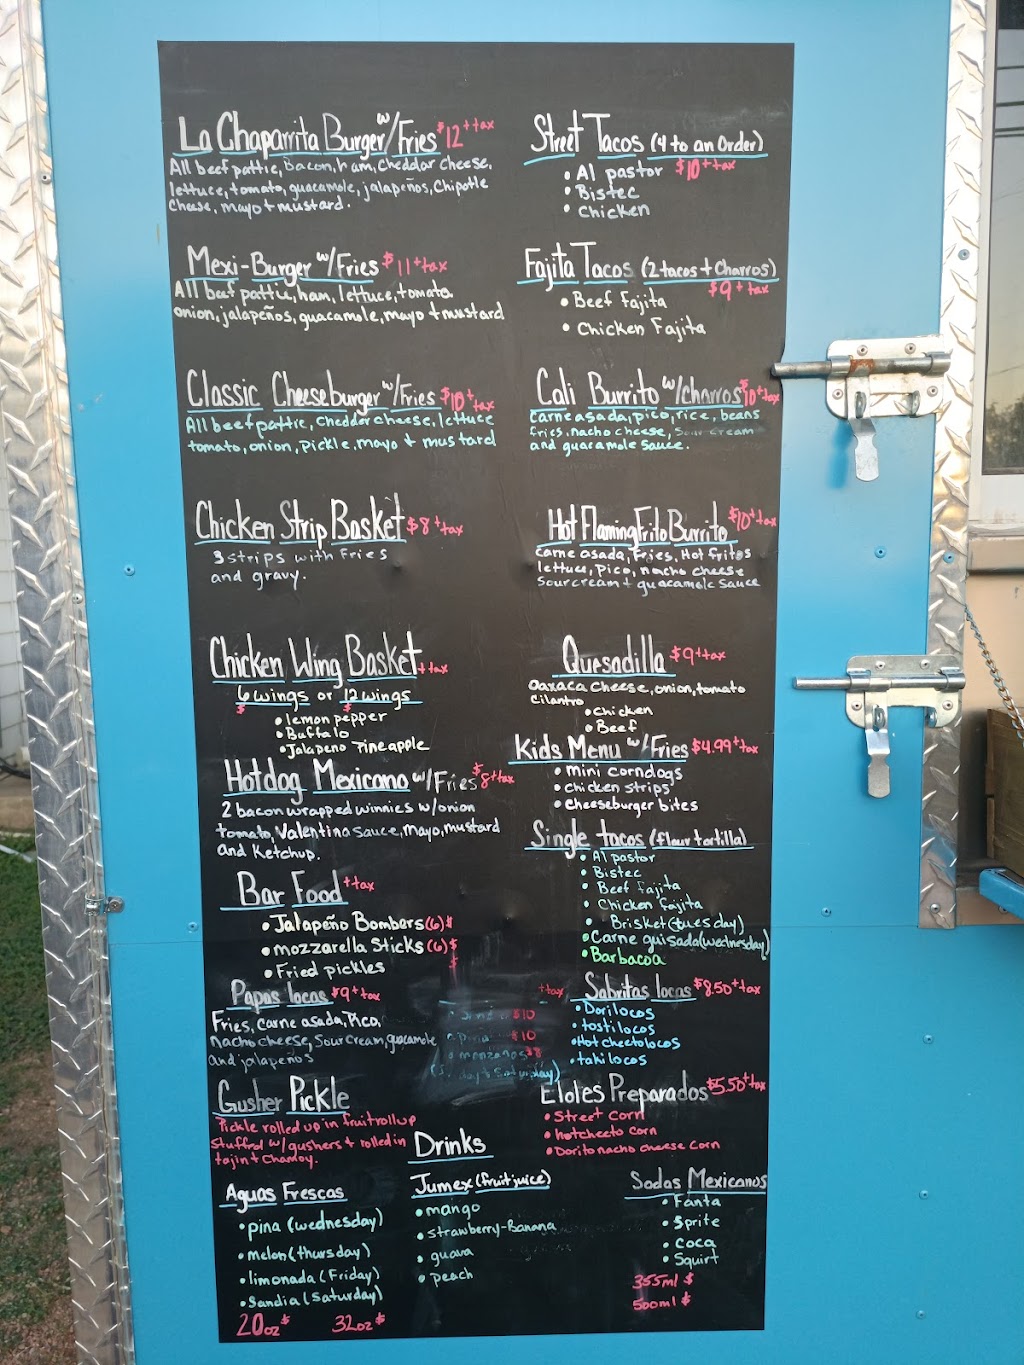 La Chaparrita Burger w/Fries $12 + tax
All beef pattie, bacon, ham, cheddar cheese,
lettuce, tomato, guacamole, jalapeños, Chipotle
Cheese, mayo + mustard.
Mexi-Burger w/Fries $11 + tax
All beef pattie, ham, lettuce, tomato
onion, jalapeños, guacamole, mayo + mustard
Classic Cheeseburger w/Fries $10 + tax
All beef pattie, cheddar cheese, lettuce
tomato, onion, pickle, mayo + mustard
Chicken Strip Basket $8 + tax
3 strips with Fries
and gravy.
Chicken Wing Basket + tax
6 wings or 12 wings
$ $
• lemon pepper
• Buffalo
• Jalapeno Pineapple
Hotdog Mexicano w/Fries $8 + tax
2 bacon wrapped winnies w/onion
tomato, Valentina sauce, mayo, mustard
and Ketchup.
Bar Food + tax
• Jalapeño Bombers (6) $
• mozzarella Sticks (6) $
• Fried pickles $
Papas locas $9 + tax
Fries, carne asada, Pico,
nacho cheese, Sour cream, guacamole
and jalapeños
Gusher Pickle
Pickle rolled up in fruit rollup
Stuffed w/ gushers + rolled in
tajin + Chamoy.
Street Tacos (4 to an Order)
$10 + tax
• Al pastor
• Bistec
• Chicken
Fajita Tacos (2 tacos + Charros)
$9 + tax
• Beef Fajita
• Chicken Fajita
Cali Burrito w/charros $10 + tax
carne asada, pico, rice, beans
fries, nacho cheese, sour cream
and guacamole sauce.
Hot Flaming Frito Burrito $10 + tax
carne asada, Fries, Hot fritos
lettuce, Pico, nacho cheese
Sour cream + guacamole sauce
Quesadilla $9 + tax
Oaxaca cheese, onion, tomato
cilantro
• Chicken
• Beef
Kids Menu w/Fries $4.99 + tax
• mini corndogs
• chicken strips
• cheeseburger bites
Single tacos (flour tortilla)
• Al pastor
• Bistec
• Beef fajita
• Chicken fajita
• Brisket (tuesday)
• Carne guisada (wednesday)
• Barbacoa
+ tax
$10
$10
$8
Sabritas locas $8.50 + tax
• Dorilocos
• tostilocos
• Hot cheetolocos
• takilocos
Elotes Preparados $5.50 + tax
• Street Corn
• hotcheeto corn
• Dorito nacho cheese corn
Drinks
Aguas Frescas
• pina (wednesday)
• melon (thursday)
• limonada (Friday)
• Sandia (Saturday)
20oz $ 32oz $
Jumex (fruit juice)
• mango
• strawberry-Banana
• guava
• peach
Sodas Mexicanos
• Fanta
• Sprite
• Coca
• Squirt
355ml $
500ml $